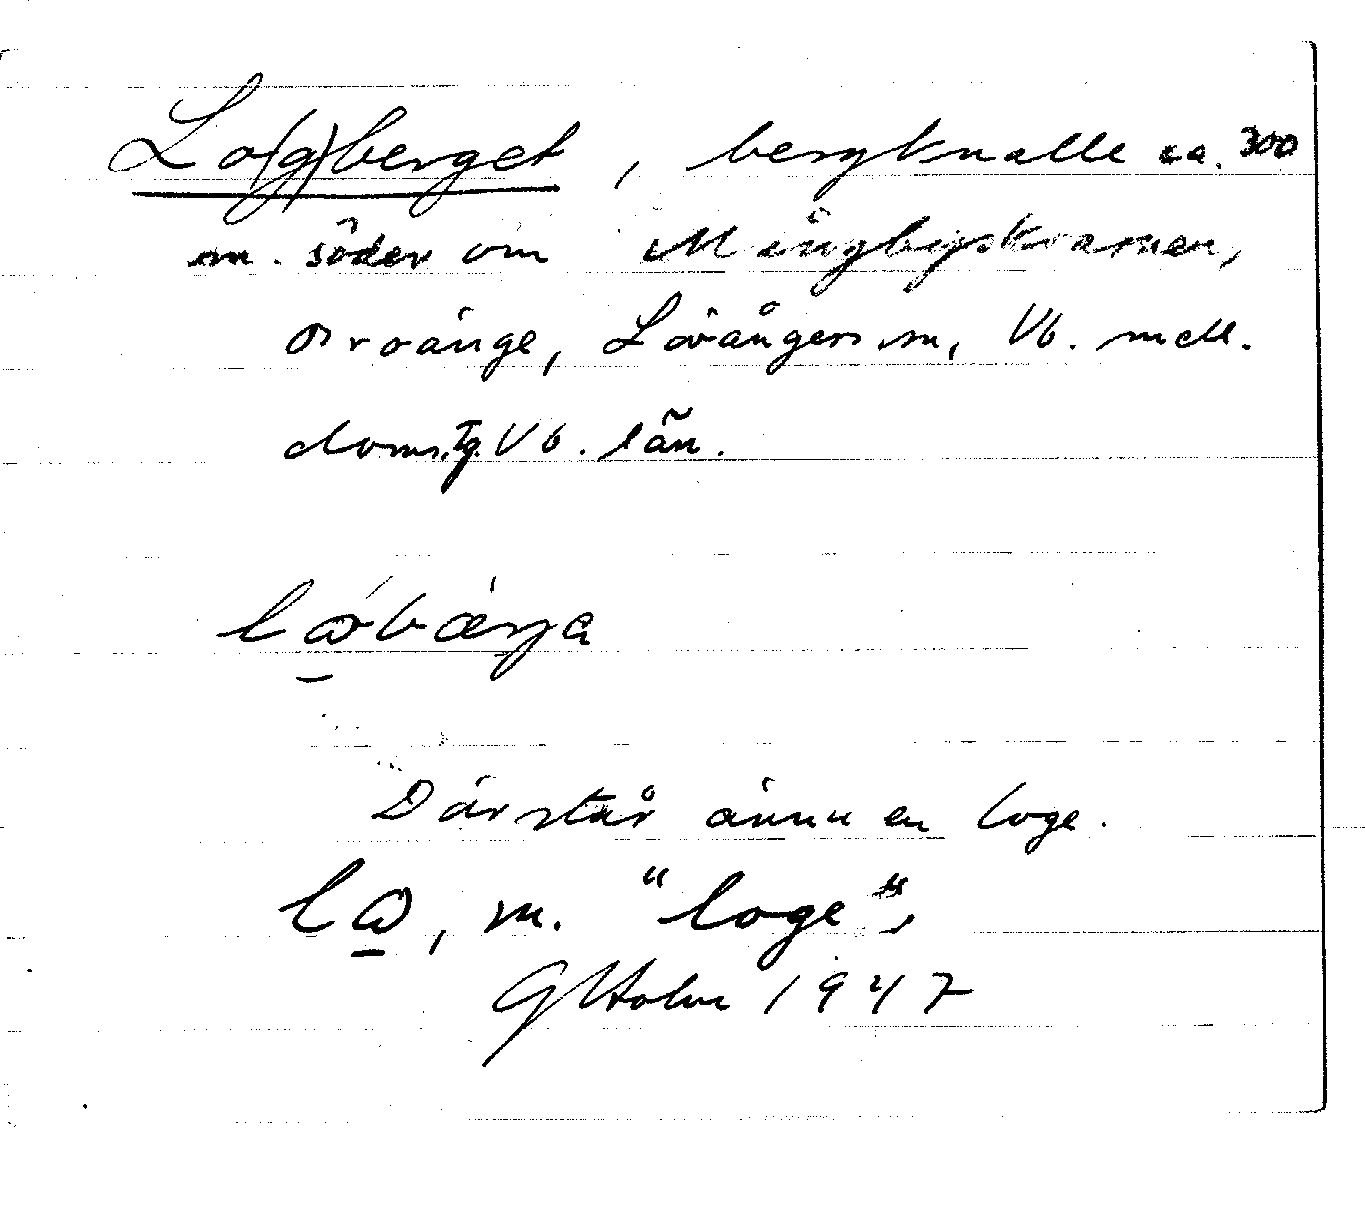 Lo(g)berget, bergknalle ca. 300
m. söder om Mångbyskvarnen,
Broänge, Lövångers sn, Vb. mell.
doms.tg. Vb. län.
Där står ännu en loge.
m. "loge",
G Holm 1947